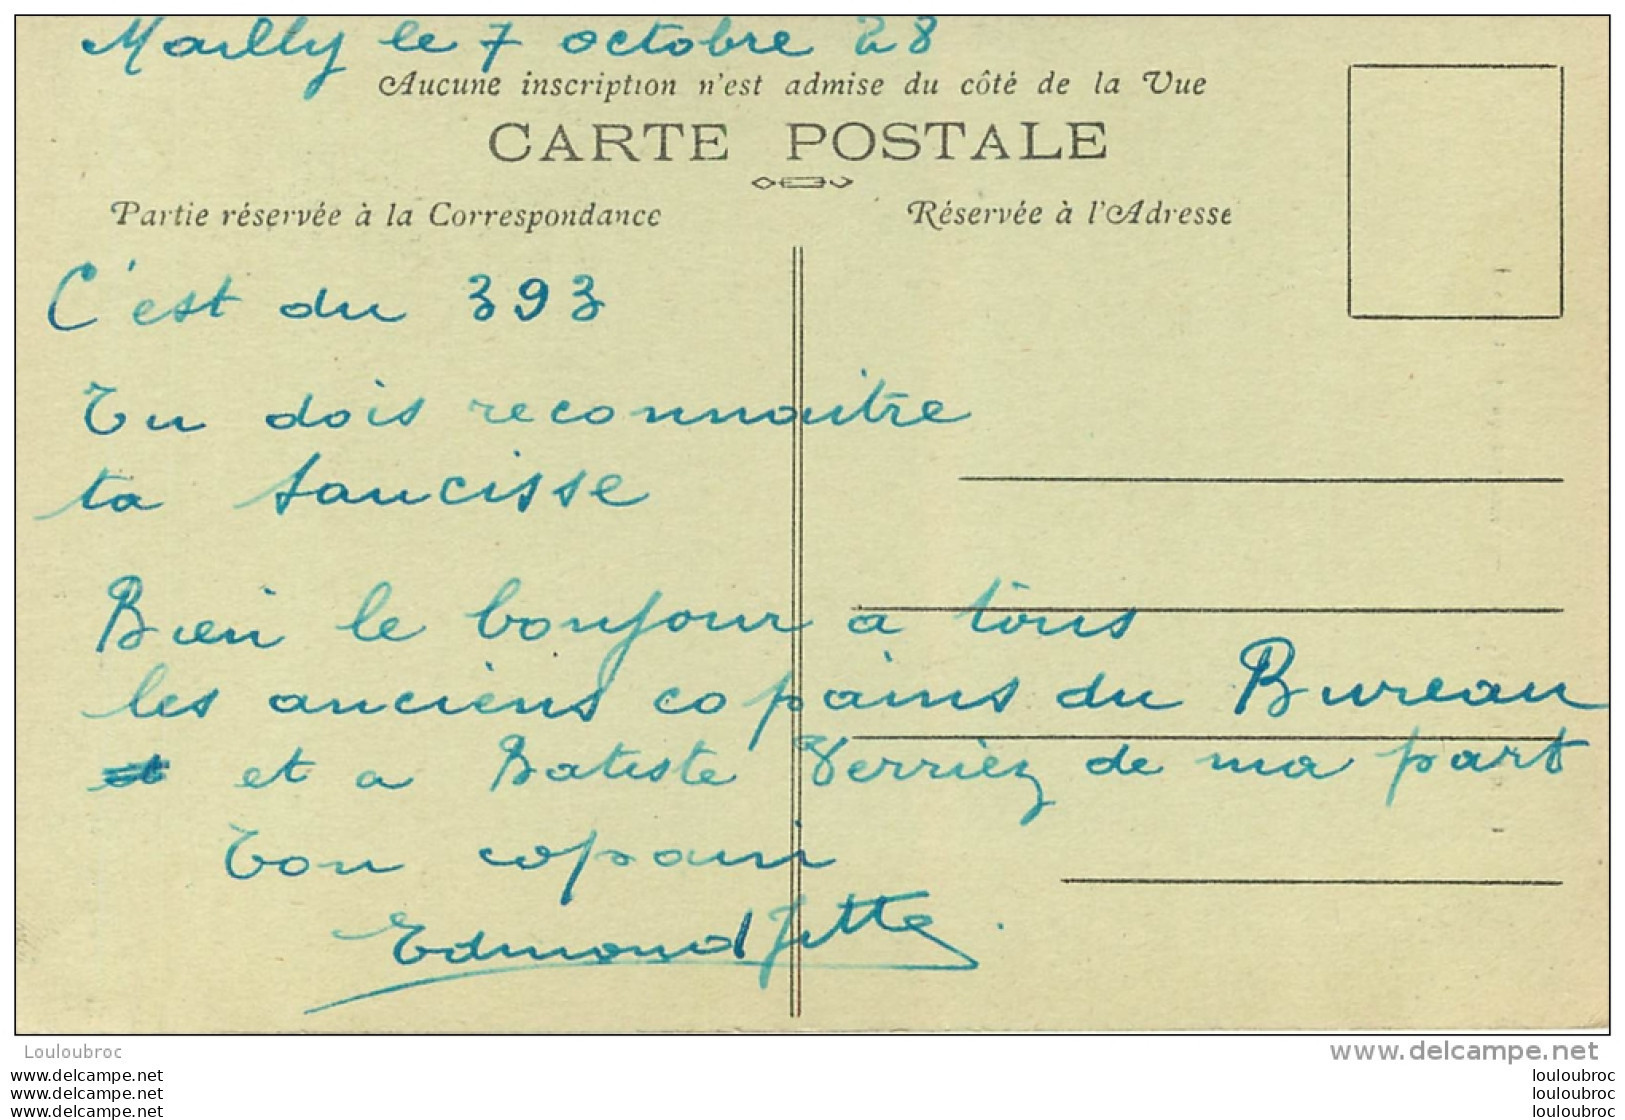 Mailly le 7 octobre 28
Aucune inscription n'est admise du côté de la Vue
CARTE POSTALE
Partie réservée à la Correspondance
Réservée à l'Adresse
C'est du 393
Tu dois reconnaitre
ta saucisse
Bien le bonjour a tous
les anciens copains du Bureau
et a Batiste Verriez de ma part
Ton copain
Edmond
Louloubroc
www.delcampe.net
www.delcampe.net
www.delcampe.net
www.delcampe.net
louloubroc
louloubroc
louloubroc